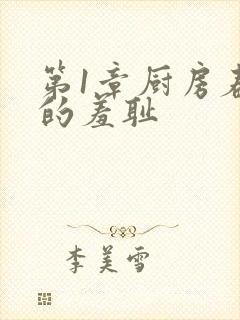 第1章厨房
的羞耻
李美雪